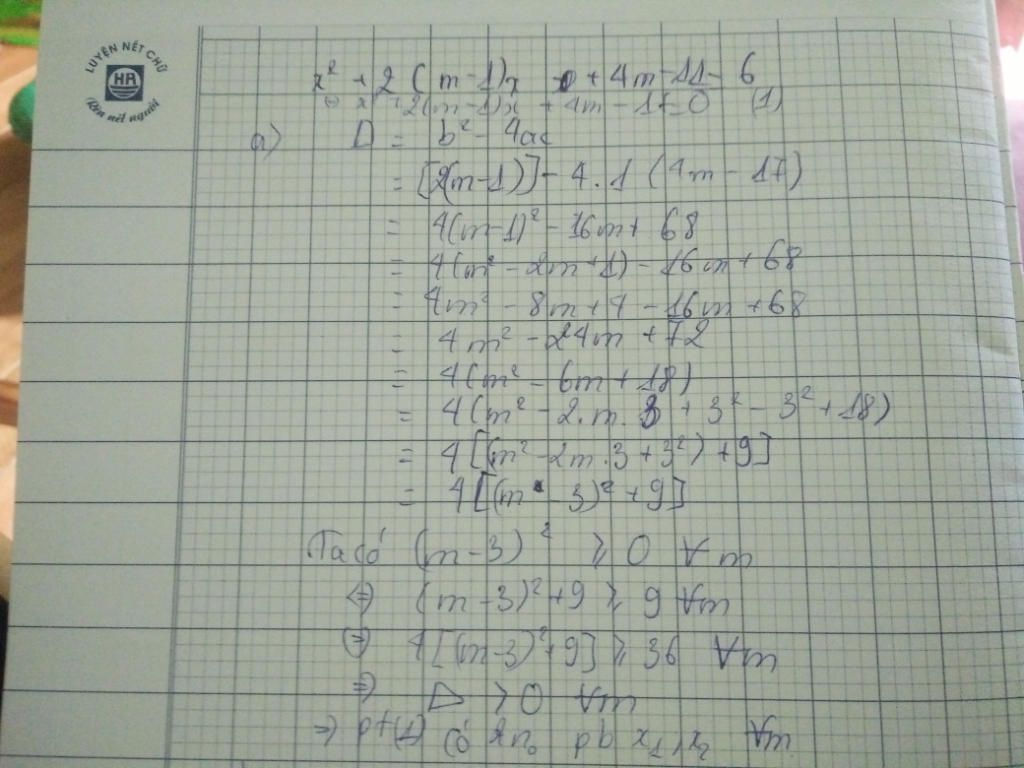 LUYỆN NÉT CHỮ
HA
Rèn nết người
x² + 2(m-1)x + 4m-11-6
⇔ x² + 2(m-1)x + 4m-17=0 (1)
a) Δ = b² - 4ac
= [2(m-1)] - 4.1 (4m - 17)
= 4(m-1)² - 16m + 68
= 4(m² - 2m + 1) - 16m + 68
= 4m² - 8m + 4 - 16m + 68
= 4m² - 24m + 72
= 4(m² - 6m + 18)
= 4(m² - 2.m.3 + 3² - 3² + 18)
= 4[(m² - 2m.3 + 3²) + 9]
= 4[(m - 3)² + 9]
Ta có (m-3)² ≥ 0 ∀m
⇔ (m-3)² + 9 ≥ 9 ∀m
⇔ 4[(m-3)² + 9] ≥ 36 ∀m
⇒ Δ > 0 ∀m
⇒ pt(1) có 2 no pb x₁, x₂ ∀m